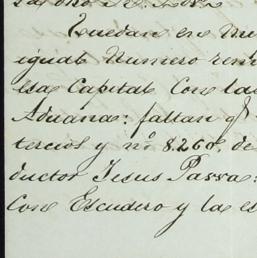 Quedan en
igual Numero
esa Capital Con las
Aduana: faltan qe
tercios y no 8.260, de
ductor Jesus Parra:
Con Escudero y la es